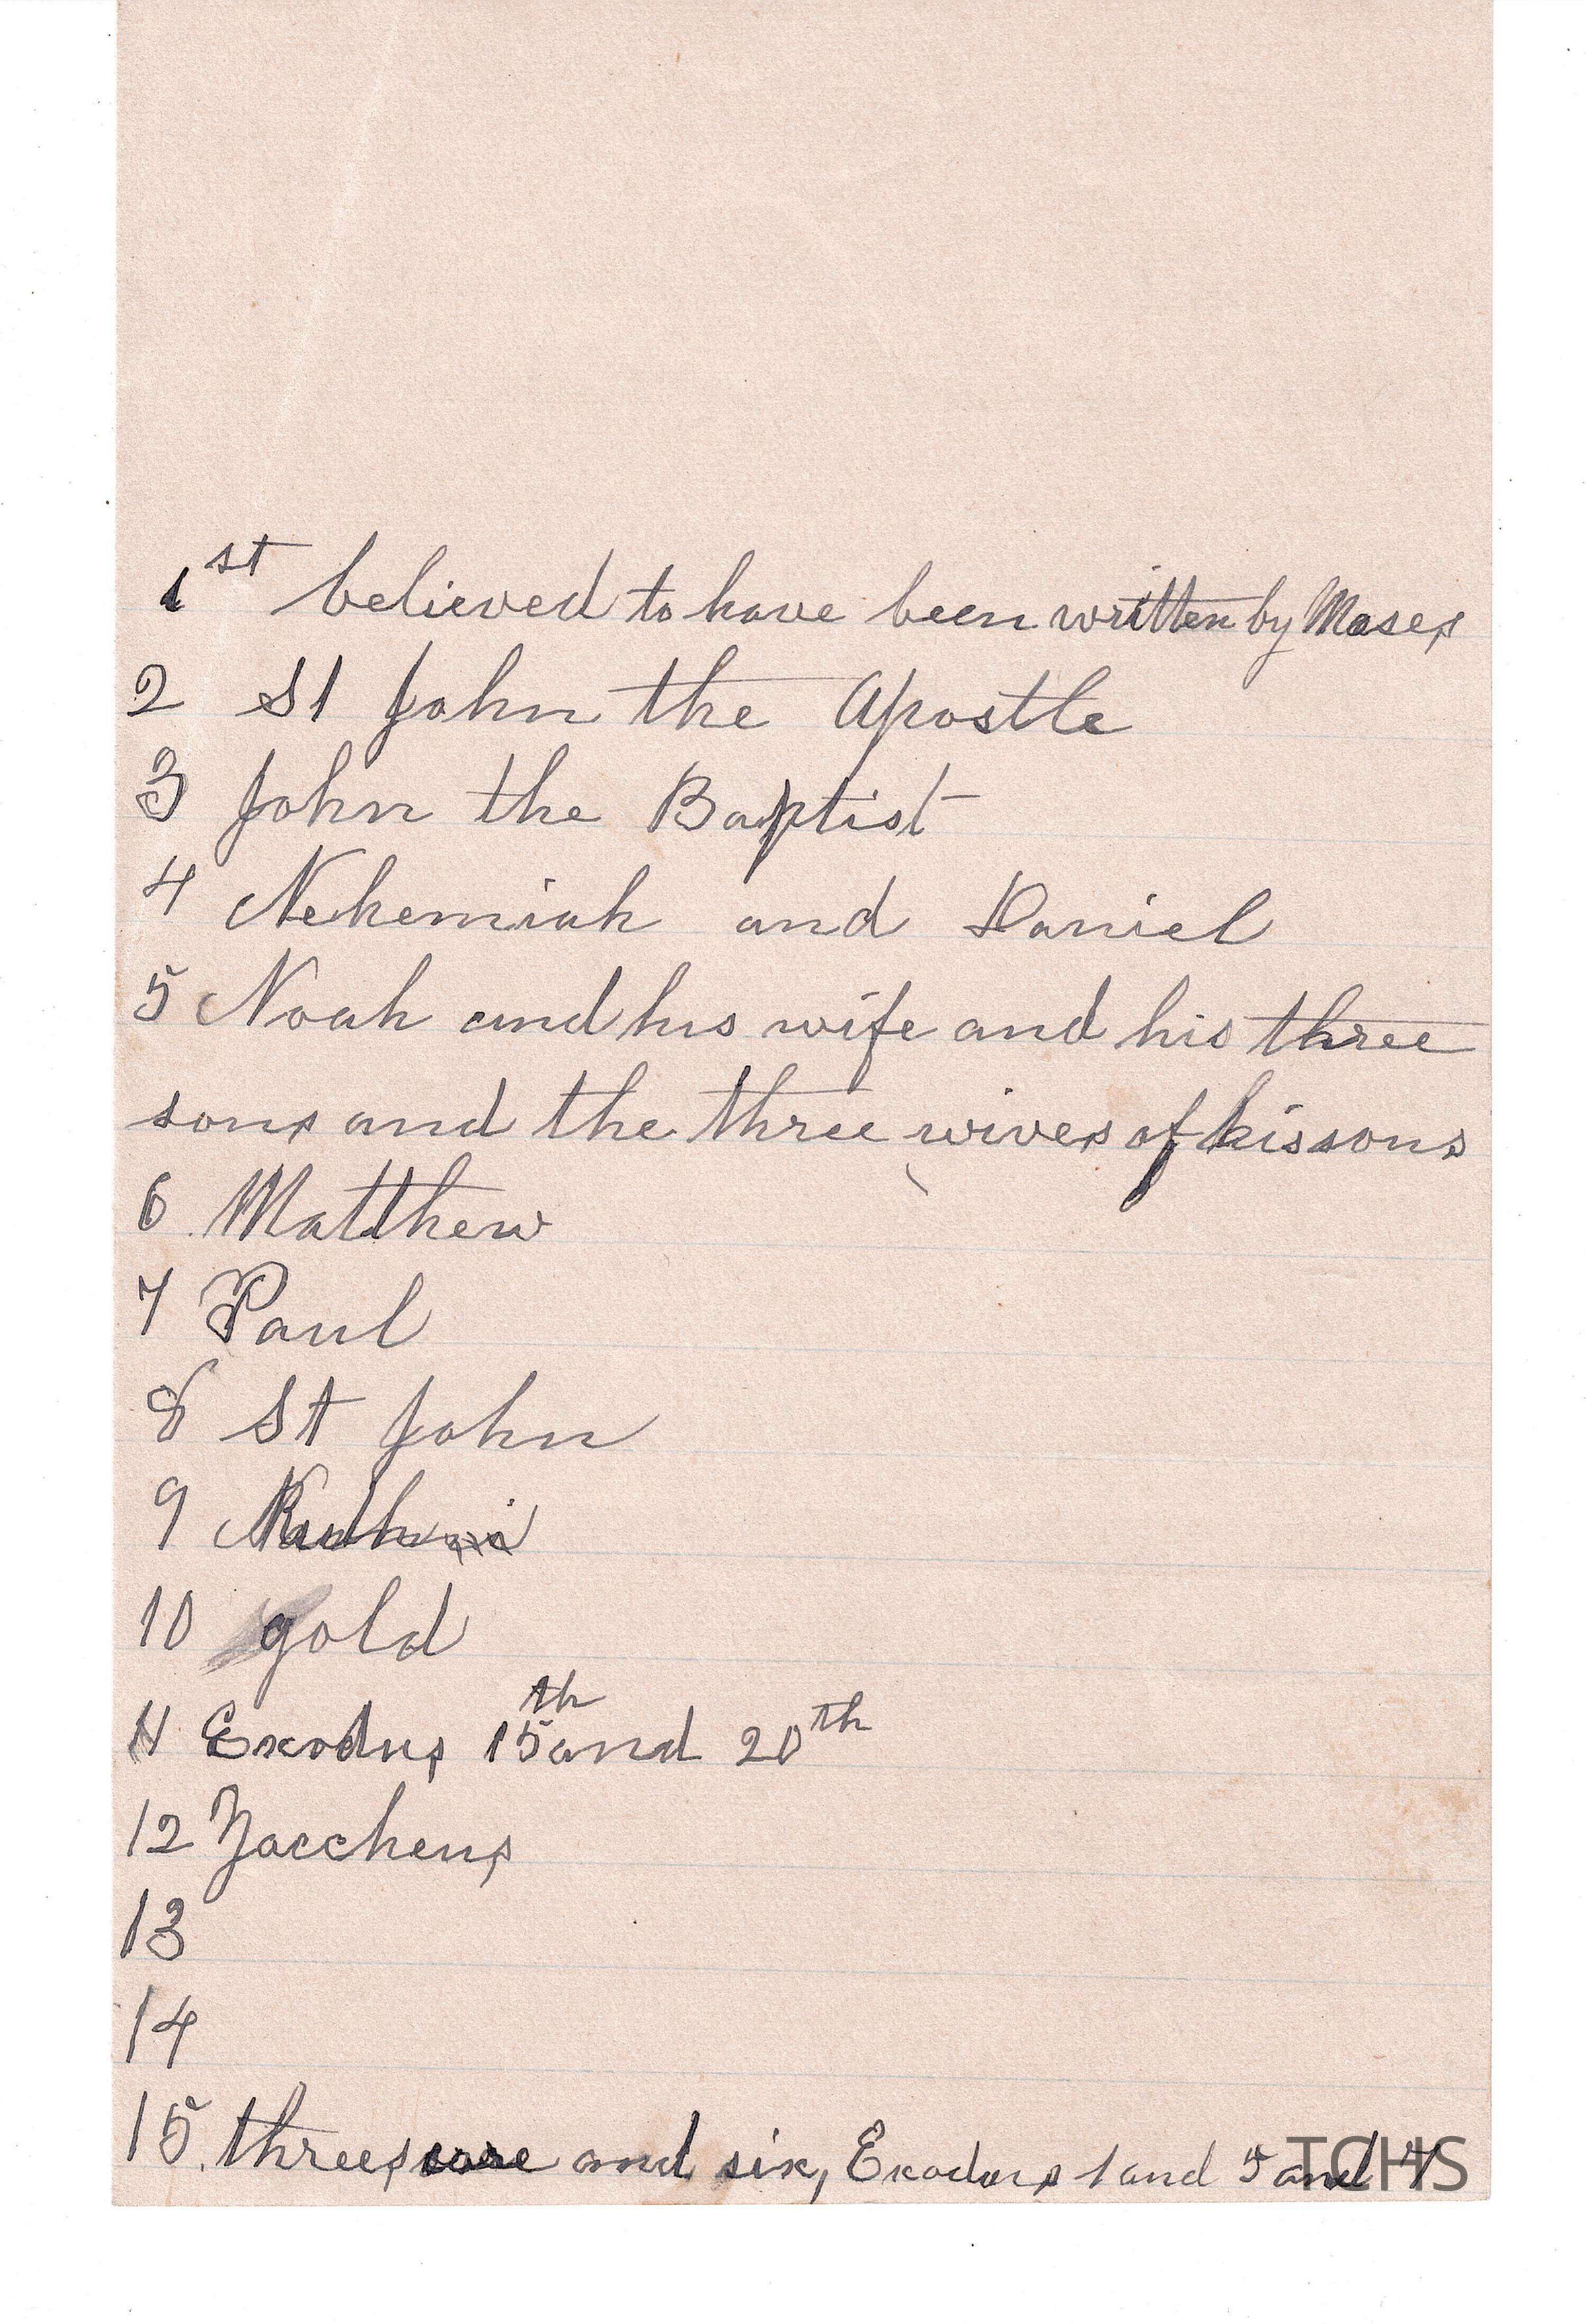 1st believed to have been written by Moses
2 St John the Apostle
3 John the Baptist
4 Nehemiah and Daniel
5 Noah and his wife and his three
sons and the three wives of his sons
6 Matthew
7 Paul
8 St John
9 Ruth
10 gold
11 Exodus 15th and 20th
12 Zaccheus
13
14
15. threescore and six, Exodus 1 and 5 and 7
TCHS